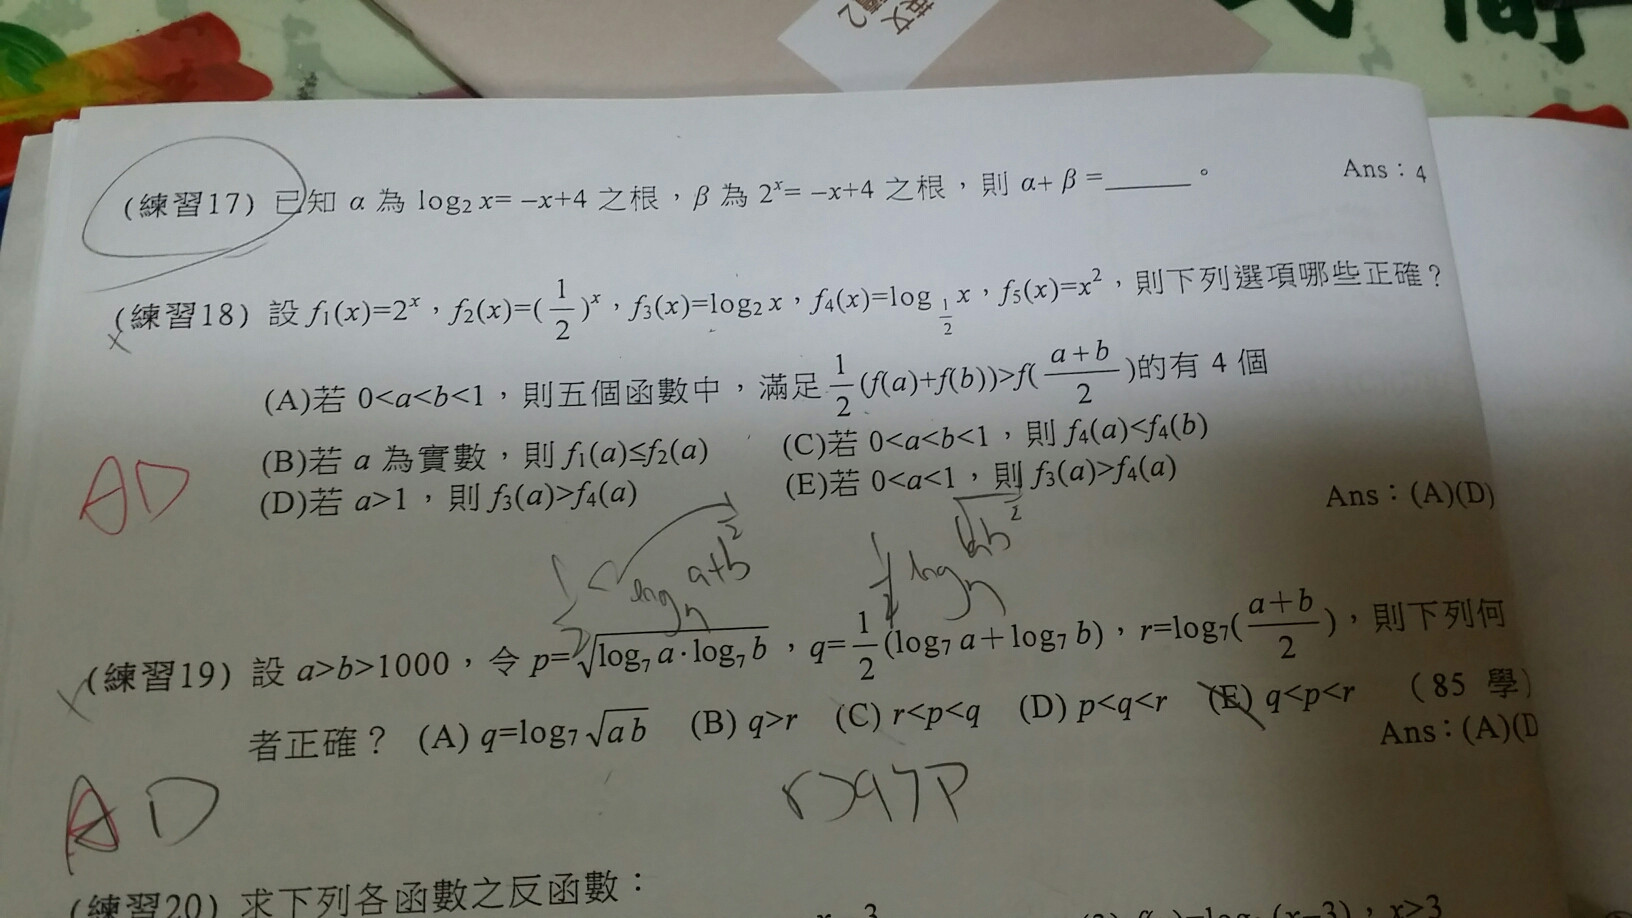 英文
2
(練習17) 已知 α 為 log₂ x= –x+4 之根，β 為 2ˣ= –x+4 之根，則 α+ β =______。 Ans：4
(練習18) 設 f₁(x)=2ˣ，f₂(x)=(1/2)ˣ，f₃(x)=log₂ x，f₄(x)=log_{1/2} x，f₅(x)=x²，則下列選項哪些正確？
(A)若 0<a<b<1，則五個函數中，滿足 1/2 (f(a)+f(b))>f( (a+b)/2 )的有 4 個
(B)若 a 為實數，則 f₁(a)≤f₂(a) (C)若 0<a<b<1，則 f₄(a)<f₄(b)
(D)若 a>1，則 f₃(a)>f₄(a) (E)若 0<a<1，則 f₃(a)>f₄(a)
AD
Ans：(A)(D)
(練習19) 設 a>b>1000，令 p=√(log₇ a·log₇ b)，q=1/2 (log₇ a+log₇ b)，r=log₇( (a+b)/2 )，則下列何
者正確？ (A) q=log₇ √ab (B) q>r (C) r<p<q (D) p<q<r (E) q<p<r (85 學)
Ans：(A)(D
r>q>P
AD
(練習20) 求下列各函數之反函數：
x>3